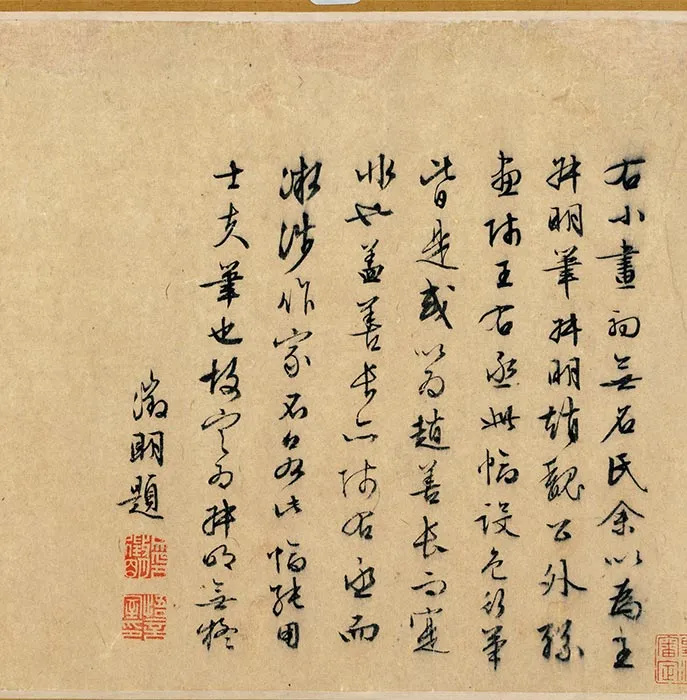 右小畫初無名氏余以為王
叔明筆叔明趙魏公外孫
畫師王右丞此幅設色行筆
皆是或以為趙善長而寔
非也蓋善長亦師右丞而
微涉作家不若此幅純用
士夫筆也故定為叔明無疑
徵明題
悟言室印